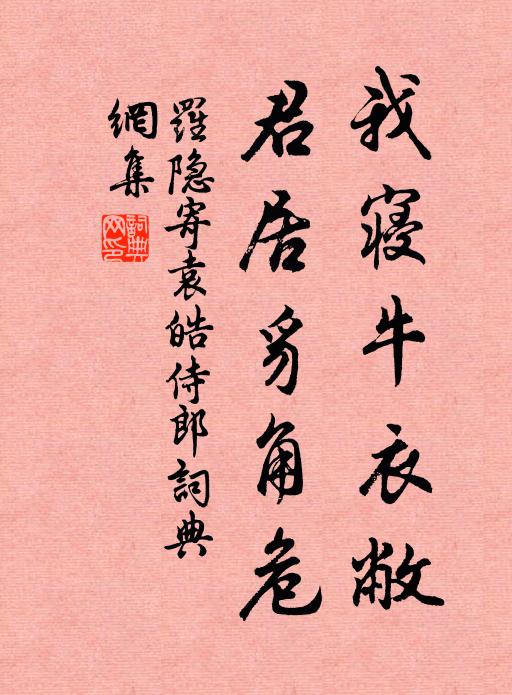 我寝牛衣敝
君居豸角危
羅隐寄袁皓侍郎詞典
網集
詞典网印